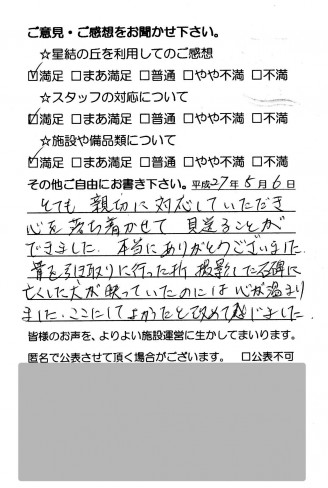 ご意見・ご感想をお聞かせ下さい。
☆星結の丘を利用してのご感想
☑満足 □まあ満足 □普通 □やや不満 □不満
☆スタッフの対応について
☑満足 □まあ満足 □普通 □やや不満 □不満
☆施設や備品類について
☑満足 □まあ満足 □普通 □やや不満 □不満
その他ご自由にお書き下さい。平成27年5月6日
とても親切に対応していただき
心を落ち着かせて見送ることが
できました。本当にありがとうございました。
骨を引き取りに行った折 撮影した石碑に
亡くした犬が映っていたのには心が温まり
ました。ここにしてよかったと改めて感じました。
皆様のお声を、よりよい施設運営に生かしてまいります。
匿名で公表させて頂く場合がございます。 □公表不可